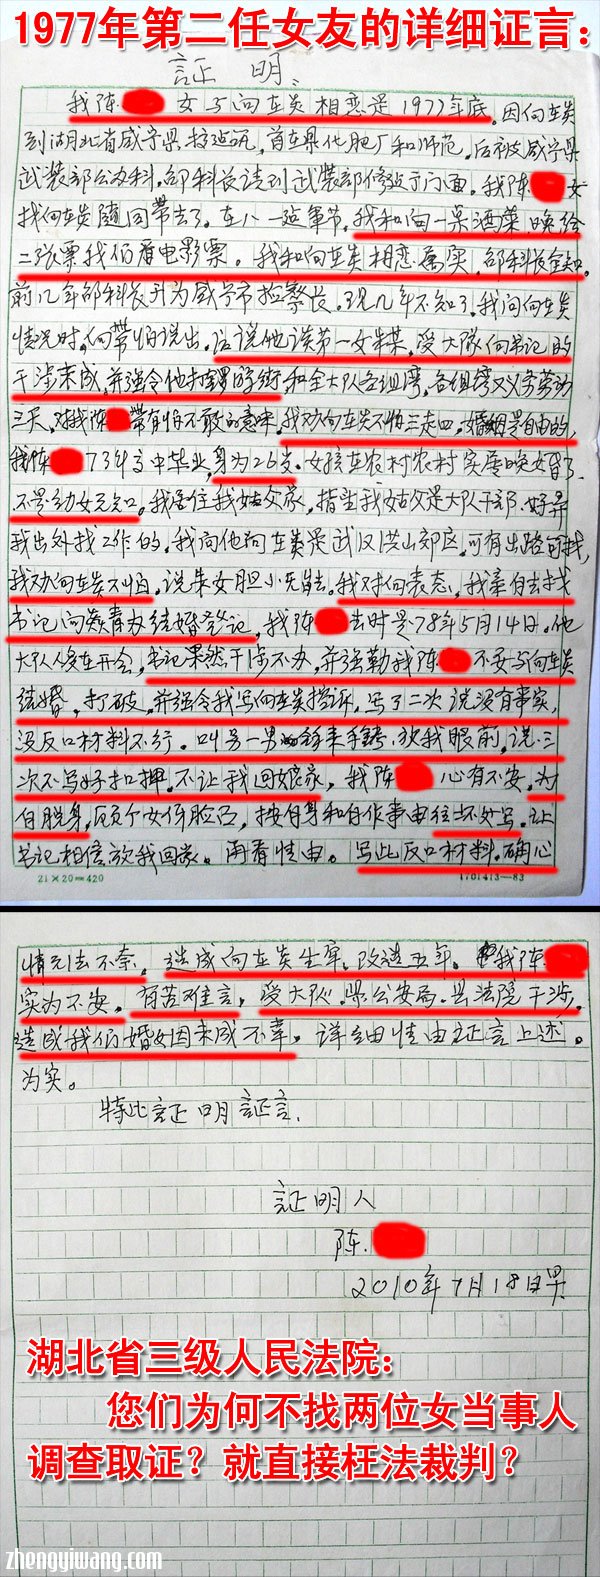 1977年第二任女友的详细证言：
証 明
我陈 女与向在炎相恋是1977年底。因向在炎
到湖北省咸宁県 首在県化肥厂和师范。后被咸宁県
武装部公办科。部科长请到武装部修 门面。我陈 女
找向在炎随同带去了。在八一 军节。我和向一桌酒菜 晚给
二张票我们看电影票。我和向在炎相恋属实。部科长全知。
前几年部科长升为咸宁市检察长。现几年不知了。我问向在炎
情况时。向带怕说出。 说他谈第一女朱某。受大队向书记的
干涉未成。并强令他 街和全大队各组湾。各组湾又义务劳动
三天。对我陈 带有怕不敢 意 。我劝向在炎不怕三走四。婚姻是自由的，
我陈 73年高中毕业，身为26岁。女孩在农村农村实属晚婚了。
不是幼女无知。我居住我姑父家，指望我姑父是大队干部。好弄
我出外找工作的。我问他向在炎是武汉洪山郊区。可有出路可找，
我劝向在炎不怕。说朱女胆小无能。我对向表态，我亲自去找
书记向焱青办结婚登记，我陈 去时是78年5月14日。他
大队 在开会，书记果然干涉不办，并强勒我陈 不要与向在炎
结婚，打破。并强令我写向在炎控诉，写了二次说没有事实，
没反口材料不行。叫另一男 拿来手铐 放我眼前，说三
次不写好扣押。不让我回娘家，我陈 心有不安。为
自脱身， 个女仔脸口，按自身和自作事由往坏处写。让
书记相信放我回家。再看情由。写此反口材料。确心
21×20＝420 1701413—83
情无法不奈。造成向在炎坐牢。改造五年。我陈
实为不安。有苦难言，受大队。県公安局。县法院干涉，
造成我们婚姻因未成不幸。详细情由証言上述。
为实。
特此証明証言.
証明人
陈.
2010年7月18日
湖北省三级人民法院：
您们为何不找两位女当事人
调查取证？就直接枉法裁判？
zhengyiwang.com